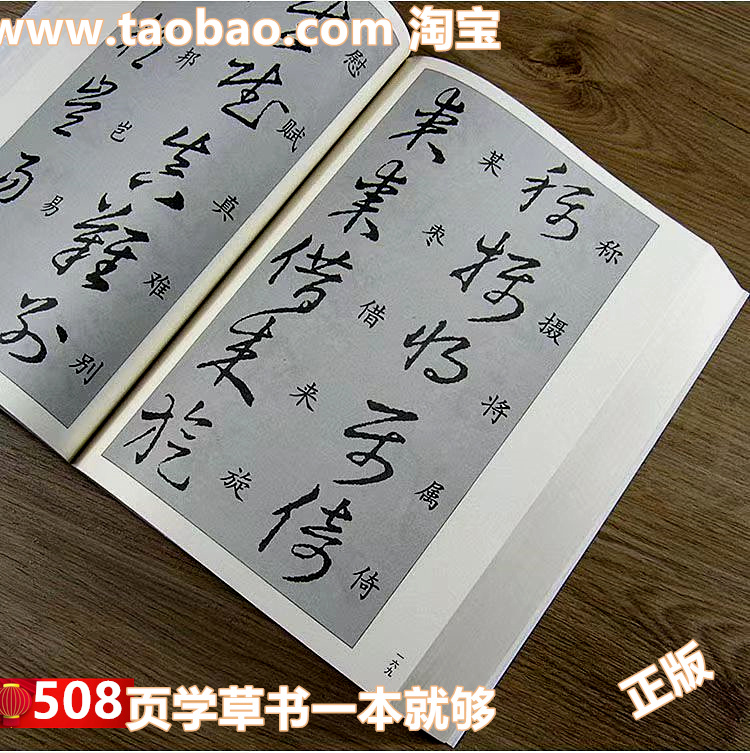 www.taobao.com 淘宝
称摄将属倚
某枣借来旋
一六九
慰赋真难别
邦岂易
508页学草书一本就够
正版